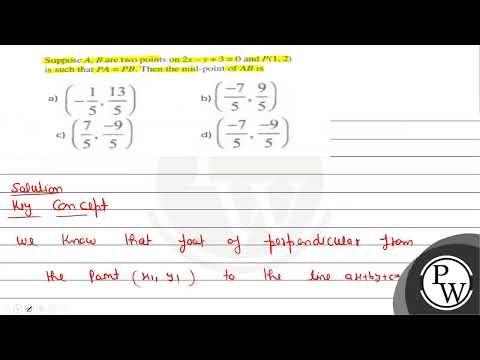 Suppose A, B are two points on 2x − y + 3 = 0 and P(1, 2)
is such that PA = PB. Then the mid-point of AB is
a) (−1/5, 13/5) b) (−7/5, 9/5)
c) (7/5, −9/5) d) (−7/5, −9/5)
Solution
Key Concept
We know that foot of perpendicular from
the Point (x1, y1) to the line ax+by+c=
PW